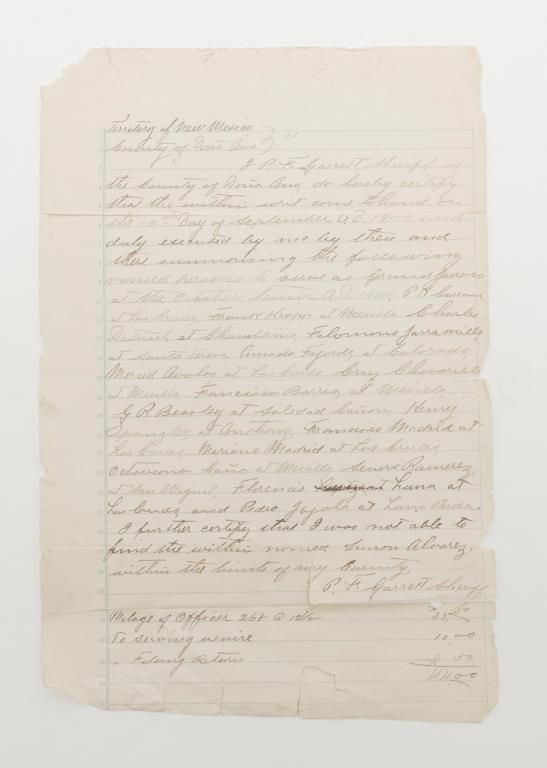 Territory of New Mexico
County of Doña Ana } ss
I P. F. Garrett Sheriff of
the County of Doña Ana, do hereby certify
that the within writ come to hand on
the Day of September A.D. 1900 and
duly executed by me by then and
there summonsing the following
named persons to serve as Grand Jurors
at the October Term A.D. 1900, P. H. Curran
at Las Cruces Frank Kropp at Mesilla Charles
at Chamberino, Filomeno Jarramillo,
at Santa Teresa, Amado Fajardo, at Colorado,
Merced Avalos at Las Cruces Cruz Chavarilla
at Mesilla, Francisco Barrio, at Mesilla,
G. P. Beasley at Soledad Cañon, Henry
Spangler at Anthony, Francisco Madrid at
Las Cruces, Mariano Madrid at Las Cruces,
Octaviano Caño at Mesilla Severo Ramerez,
at San Miguel, Florencio Luna at
Las Cruces, and Pdro at Loma Parda.
I further certify that I was not able to
find the within named Simon Alvarez,
within the limits of my County,
P. F. Garrett Sheriff
Milage of Officer 268 @ 12½ 33.50
To serving venire 10.00
" Filing Return .50
44.00